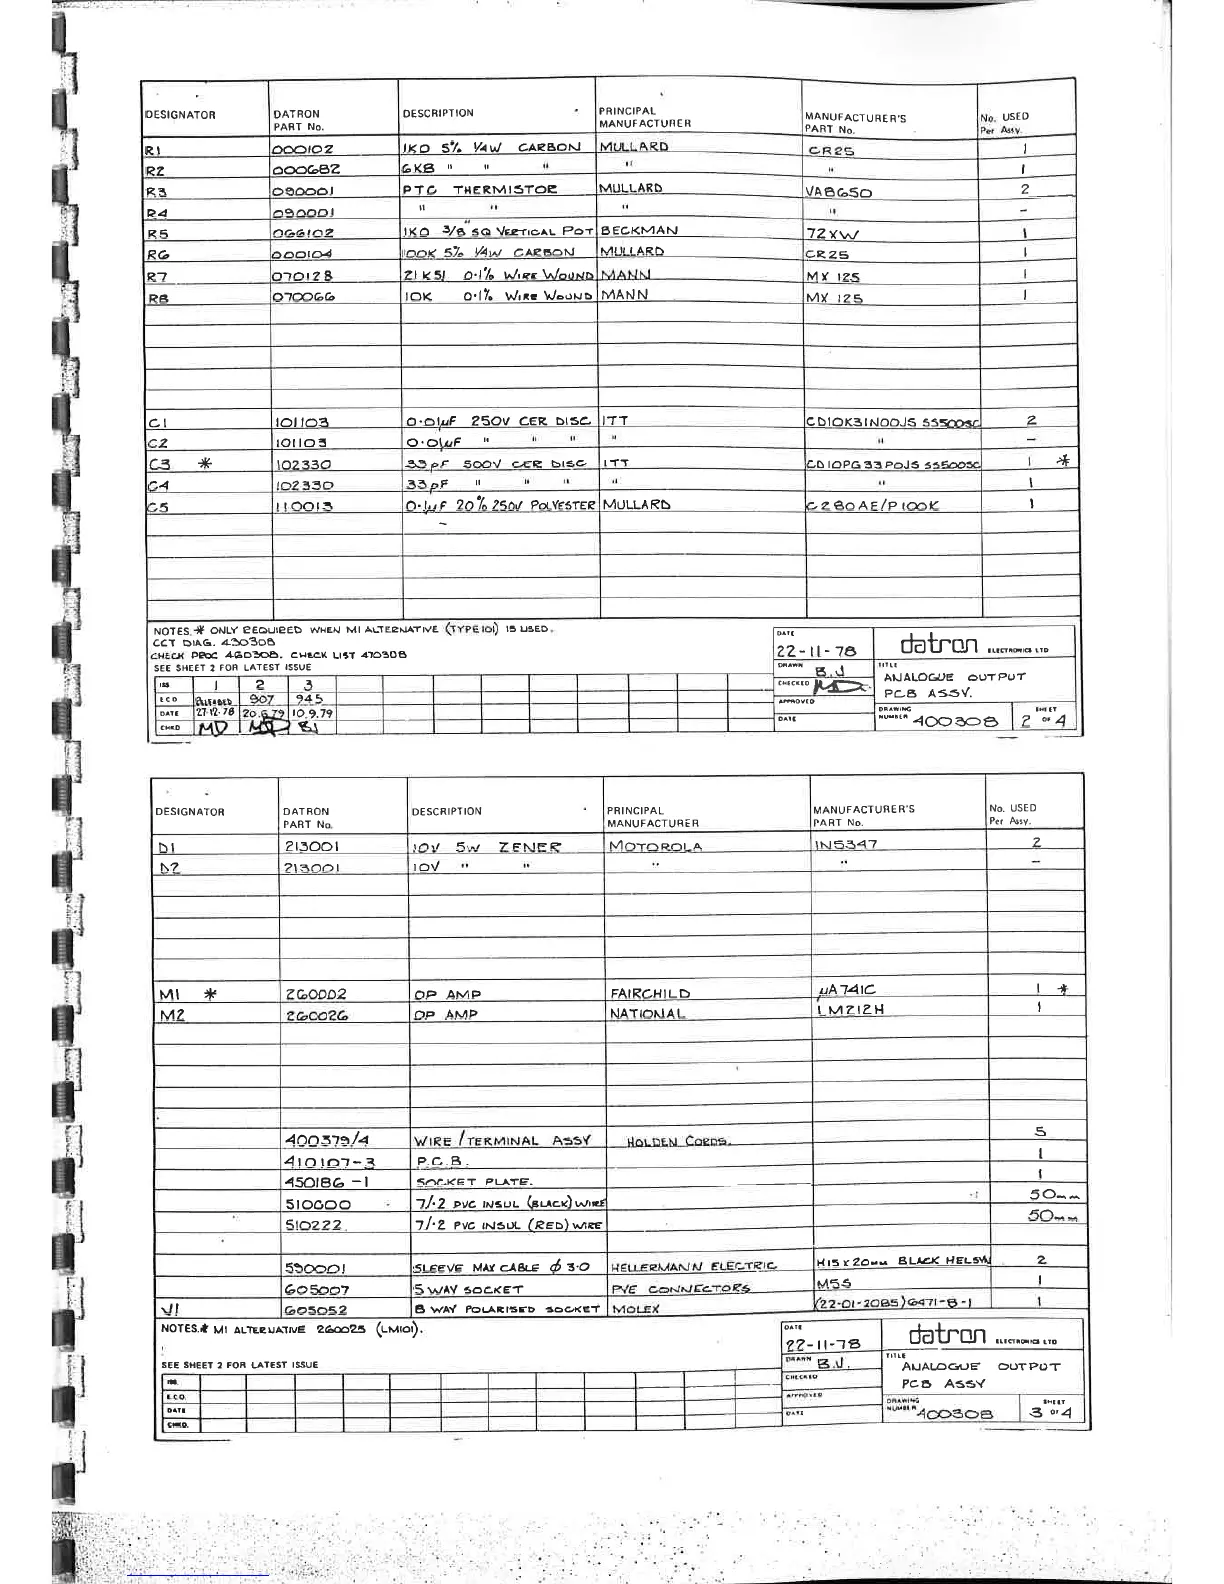 DESIGNATOR | DATRON PART No. | DESCRIPTION | PRINCIPAL MANUFACTURER | MANUFACTURER'S PART No. | No. USED Per Assy.
R1 | 000102 | 1K0 5% 1/4W CARBON | MULLARD | CR25 | 1
R2 | 000682 | 6K8 " " " | " | " | 1
R3 | 090001 | PTC THERMISTOR | MULLARD | VA8650 | 2
R4 | 090001 | " " | " | " | –
R5 | 066102 | 1K0 3/8" SQ VERTICAL POT | BECKMAN | 72XW | 1
R6 | 000104 | 100K 5% 1/4W CARBON | MULLARD | CR25 | 1
R7 | 070128 | 21K51 0·1% WIRE WOUND | MANN | MX 125 | 1
R8 | 070066 | 10K 0·1% WIRE WOUND | MANN | MX 125 | 1
C1 | 101103 | 0·01µF 250V CER DISC | ITT | CD10K31N00JS 5S500SC | 2
C2 | 101103 | 0·01µF " " " | " | " | –
C3 * | 102330 | 33pF 500V CER DISC | ITT | CD10PG33P0JS 5S500SC | 1 *
C4 | 102330 | 33pF " " " | " | " | 1
C5 | 110013 | 0·1µF 20% 250V POLYESTER | MULLARD | C280AE/P100K | 1
NOTES. * ONLY REQUIRED WHEN M1 ALTERNATIVE (TYPE 101) IS USED.
CCT DIAG. 430308
CHECK PROC 460308. CHECK LIST 470308
SEE SHEET 2 FOR LATEST ISSUE
ISS | 1 | 2 | 3
E C O | RELEASED | 907 | 945
DATE | 27·12·78 | 20.6.79 | 10.9.79
CHKD | MD | MD | BJ
DATE 22-11-78
DRAWN B.J
CHECKED MD
APPROVED
DATE
datron ELECTRONICS LTD
TITLE
ANALOGUE OUTPUT
PCB ASSY.
DRAWING NUMBER 400308 | SHEET 2 OF 4
DESIGNATOR | DATRON PART No. | DESCRIPTION | PRINCIPAL MANUFACTURER | MANUFACTURER'S PART No. | No. USED Per Assy.
D1 | 213001 | 10V 5W ZENER | MOTOROLA | 1N5347 | 2
D2 | 213001 | 10V " " | " | " | –
M1 * | 260002 | OP AMP | FAIRCHILD | µA741C | 1 *
M2 | 260026 | OP AMP | NATIONAL | LM212H | 1
400379/4 | WIRE/TERMINAL ASSY | HOLDEN CORDS. | 5
410107-3 | P.C.B. | 1
450186-1 | SOCKET PLATE. | 1
510000 | 7/·2 PVC INSUL (BLACK) WIRE | 50mm
510222 | 7/·2 PVC INSUL (RED) WIRE | 50mm
590001 | SLEEVE MAX CABLE ϕ 3·0 | HELLERMANN ELECTRIC | H15 X 20mm BLACK HELSYN | 2
605007 | 5 WAY SOCKET | PYE CONNECTORS | M55 | 1
J1 | 605052 | 8 WAY POLARISED SOCKET | MOLEX | (22-01-2085) 6471-8-1 | 1
NOTES. * M1 ALTERNATIVE 260025 (LM101).
SEE SHEET 2 FOR LATEST ISSUE
ISS.
E.C.O.
DATE
CHKD.
DATE 22-11-78
DRAWN B.J.
CHECKED
APPROVED
DATE
datron ELECTRONICS LTD
TITLE
ANALOGUE OUTPUT
PCB ASSY
DRAWING NUMBER 400308 | SHEET 3 OF 4